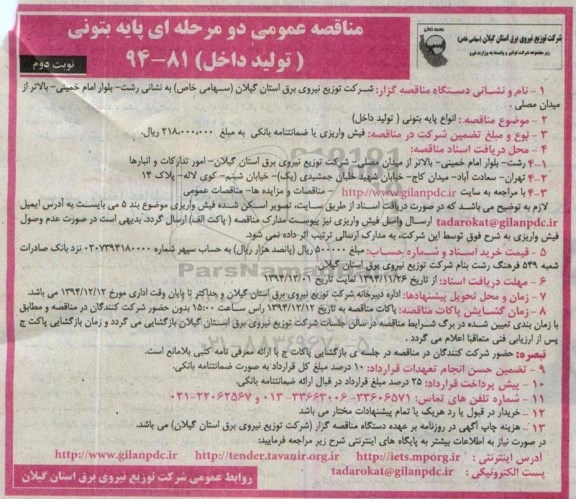 شرکت توزیع نیروی برق استان گیلان (سهامی خاص)
مناقصه عمومی دو مرحله ای پایه بتونی
( تولید داخل) ۸۱-۹۴
نوبت دوم
۱ - نام و نشانی دستگاه مناقصه گزار: شرکت توزیع نیروی برق استان گیلان (سهامی خاص) به نشانی رشت- بلوار امام خمینی- بالاتر از
میدان مصلی .
۲ - موضوع مناقصه: انواع پایه بتونی ( تولید داخل)
۳ - نوع و مبلغ تضمین شرکت در مناقصه: فیش واریزی یا ضمانتنامه بانکی به مبلغ ۲۱۸،۰۰۰،۰۰۰ ریال.
۴ - محل دریافت اسناد مناقصه:
۴-۱ رشت- بلوار امام خمینی- بالاتر از میدان مصلی- شرکت توزیع نیروی برق استان گیلان- امور تدارکات و انبارها
۴-۲ تهران- سعادت آباد- میدان کاج- خیابان شهید خلبان جمشیدی (یک)- خیابان شبنم- کوی لاله- پلاک ۱۴
۴-۳ با مراجعه به سایت http://www.gilanpdc.ir - مناقصات و مزایده ها- مناقصات عمومی
لازم به توضیح می باشد که در صورت دریافت اسناد از طریق سایت، تصویر اسکن شده فیش واریزی موضوع بند ۵ می بایست به آدرس ایمیل
tadarokat@gilanpdc.ir ارسال واصل فیش واریزی نیز پیوست مدارک مناقصه ( پاکت الف) ارسال گردد. بدیهی است در صورت عدم وصول
فیش واریزی به شرح فوق توسط این شرکت، به مدارک ارسالی ترتیب اثر داده نمی شود.
۵ - قیمت خرید اسناد و شماره حساب: مبلغ ۵۰۰۰۰۰ ریال (پانصد هزار ریال) به حساب سپهر شماره ۰۲۰۷۳۹۴۱۸۰۰۰۰ نزد بانک صادرات
شعبه ۵۴۹ فرهنگ رشت بنام شرکت توزیع نیروی برق استان گیلان
۶ - مهلت دریافت اسناد: از تاریخ ۱۳۹۴/۱۱/۲۶ لغایت تاریخ ۱۳۹۴/۱۲/۰۱
۷ - زمان و محل تحویل پیشنهادها: اداره دبیرخانه شرکت توزیع نیروی برق استان گیلان و حداکثر تا پایان وقت اداری مورخ ۱۳۹۴/۱۲/۱۲ می باشد.
۸ - زمان گشایش پاکات مناقصه: پاکات مناقصه به تاریخ ۱۳۹۴/۱۲/۱۲ راس ساعت ۱۵:۰۰ بدون حضور شرکت کنندگان در مناقصه و مطابق
با زمان بندی تعیین شده در برگ شرایط مناقصه در سالن جلسات شرکت توزیع نیروی برق استان گیلان بازگشایی می گردد و زمان بازگشایی پاکت ج
پس از ارزیابی فنی متعاقبا اعلام می گردد .
تبصره: حضور شرکت کنندگان در مناقصه در جلسه ی بازگشایی پاکات ج با ارائه معرفی نامه کتبی بلامانع است.
۹ - تضمین حسن انجام تعهدات قرارداد: ۱۰ درصد مبلغ کل قرارداد به صورت ضمانتنامه بانکی.
۱۰ - پیش پرداخت قرارداد: ۲۵ درصد مبلغ قرارداد در قبال ارائه ضمانتنامه بانکی.
۱۱ - شماره تلفن های تماس: ۳۳۶۰۶۵۷۱- ۳۳۶۶۳۰۰۶-۰۱۳ و ۲۲۰۶۲۵۶۷-۰۲۱
۱۲ - خریدار در قبول یا رد هریک یا تمام پیشنهادات مختار می باشد
۱۳ - هزینه چاپ آگهی در روزنامه بر عهده دستگاه مناقصه گزار (شرکت توزیع نیروی برق استان گیلان) می باشد.
در صورت نیاز به اطلاعات بیشتر به پایگاه های اینترنتی شرح زیر مراجعه فرمایید:
آدرس اینترنتی : http://iets.mporg.ir http://tender.tavanir.org.ir http://www.gilanpdc.ir
پست الکترونیکی : tadarokat@gilanpdc.ir
روابط عمومی شرکت توزیع نیروی برق استان گیلان